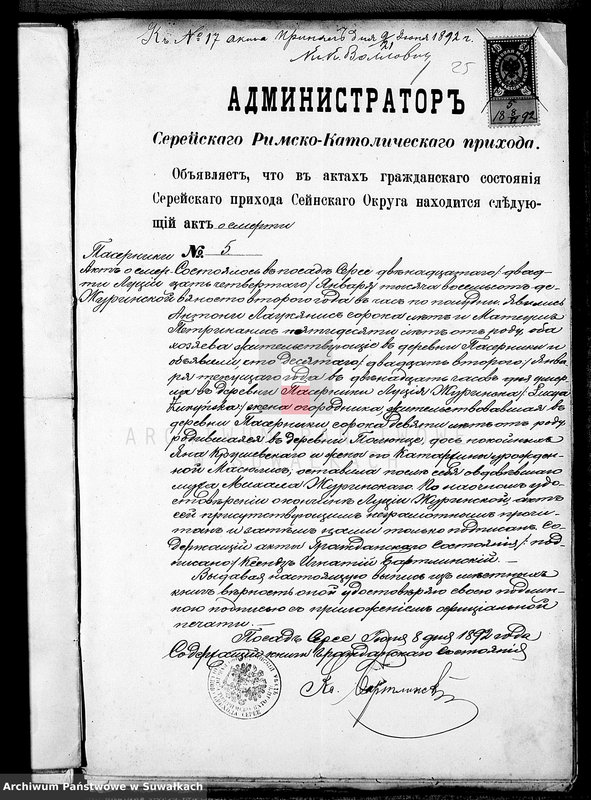 Къ № 17 акта принятъ дня 9/21 Іюня 1892 г.
25
5
18 8/VI 92
АДМИНИСТРАТОРЪ
Серейскаго Римско-Католическаго прихода.
Объявляетъ, что въ актахъ гражданскаго состоянія
Серейскаго прихода Сейнскаго Округа находится слѣдую-
щій актъ о смерти
Пасерники № 5
Актъ о смер- Состоялось въ посадѣ Серее двѣнадцатаго/двад-
ти Луціи цать четвертаго/ Января тысяча восемьсотъ де-
Жургинской вяносто второго года въ часъ по полудни. Явились
Антоній сорока лѣтъ и Матеушъ
пятидесяти лѣтъ отъ роду, оба
хозяева жительствующіе въ деревни Пасерники и
объявили что десятаго/двадцать второго/ Янва-
ря текущаго года въ двѣнадцать часовъ дня умер-
ла въ деревни Пасерники Луція Жургинска
жена огородника жительствовавшая въ
деревни Пасерники сорока девяти лѣтъ отъ роду
родившаяся въ деревни дочь покойныхъ
Яна и жены его Катарины урожден-
ной оставивъ послѣ себя овдовѣвшаго
мужа Михаила Жургинскаго. По наочномъ удо-
стовѣреніи о кончинѣ Луціи Жургинской, актъ
сей присутствующимъ неграмотнымъ прочи-
танъ и затѣмъ нами только подписанъ. Со-
держащій акты Гражданскаго Состоянія/: под-
писано/ Ксендзъ Игнатій Бартлинскій. —
Выдавая настоящую выпись изъ мѣстныхъ
книгъ вѣрность оной удостовѣряю своею подлин-
ною подписью съ приложеніемъ оффиціальной
печати. —
Посадъ Серее Іюня 8 дня 1892 года
Содержащій книги Гражданскаго Состоянія
Кс.
Archiwum Państwowe w Suwałkach